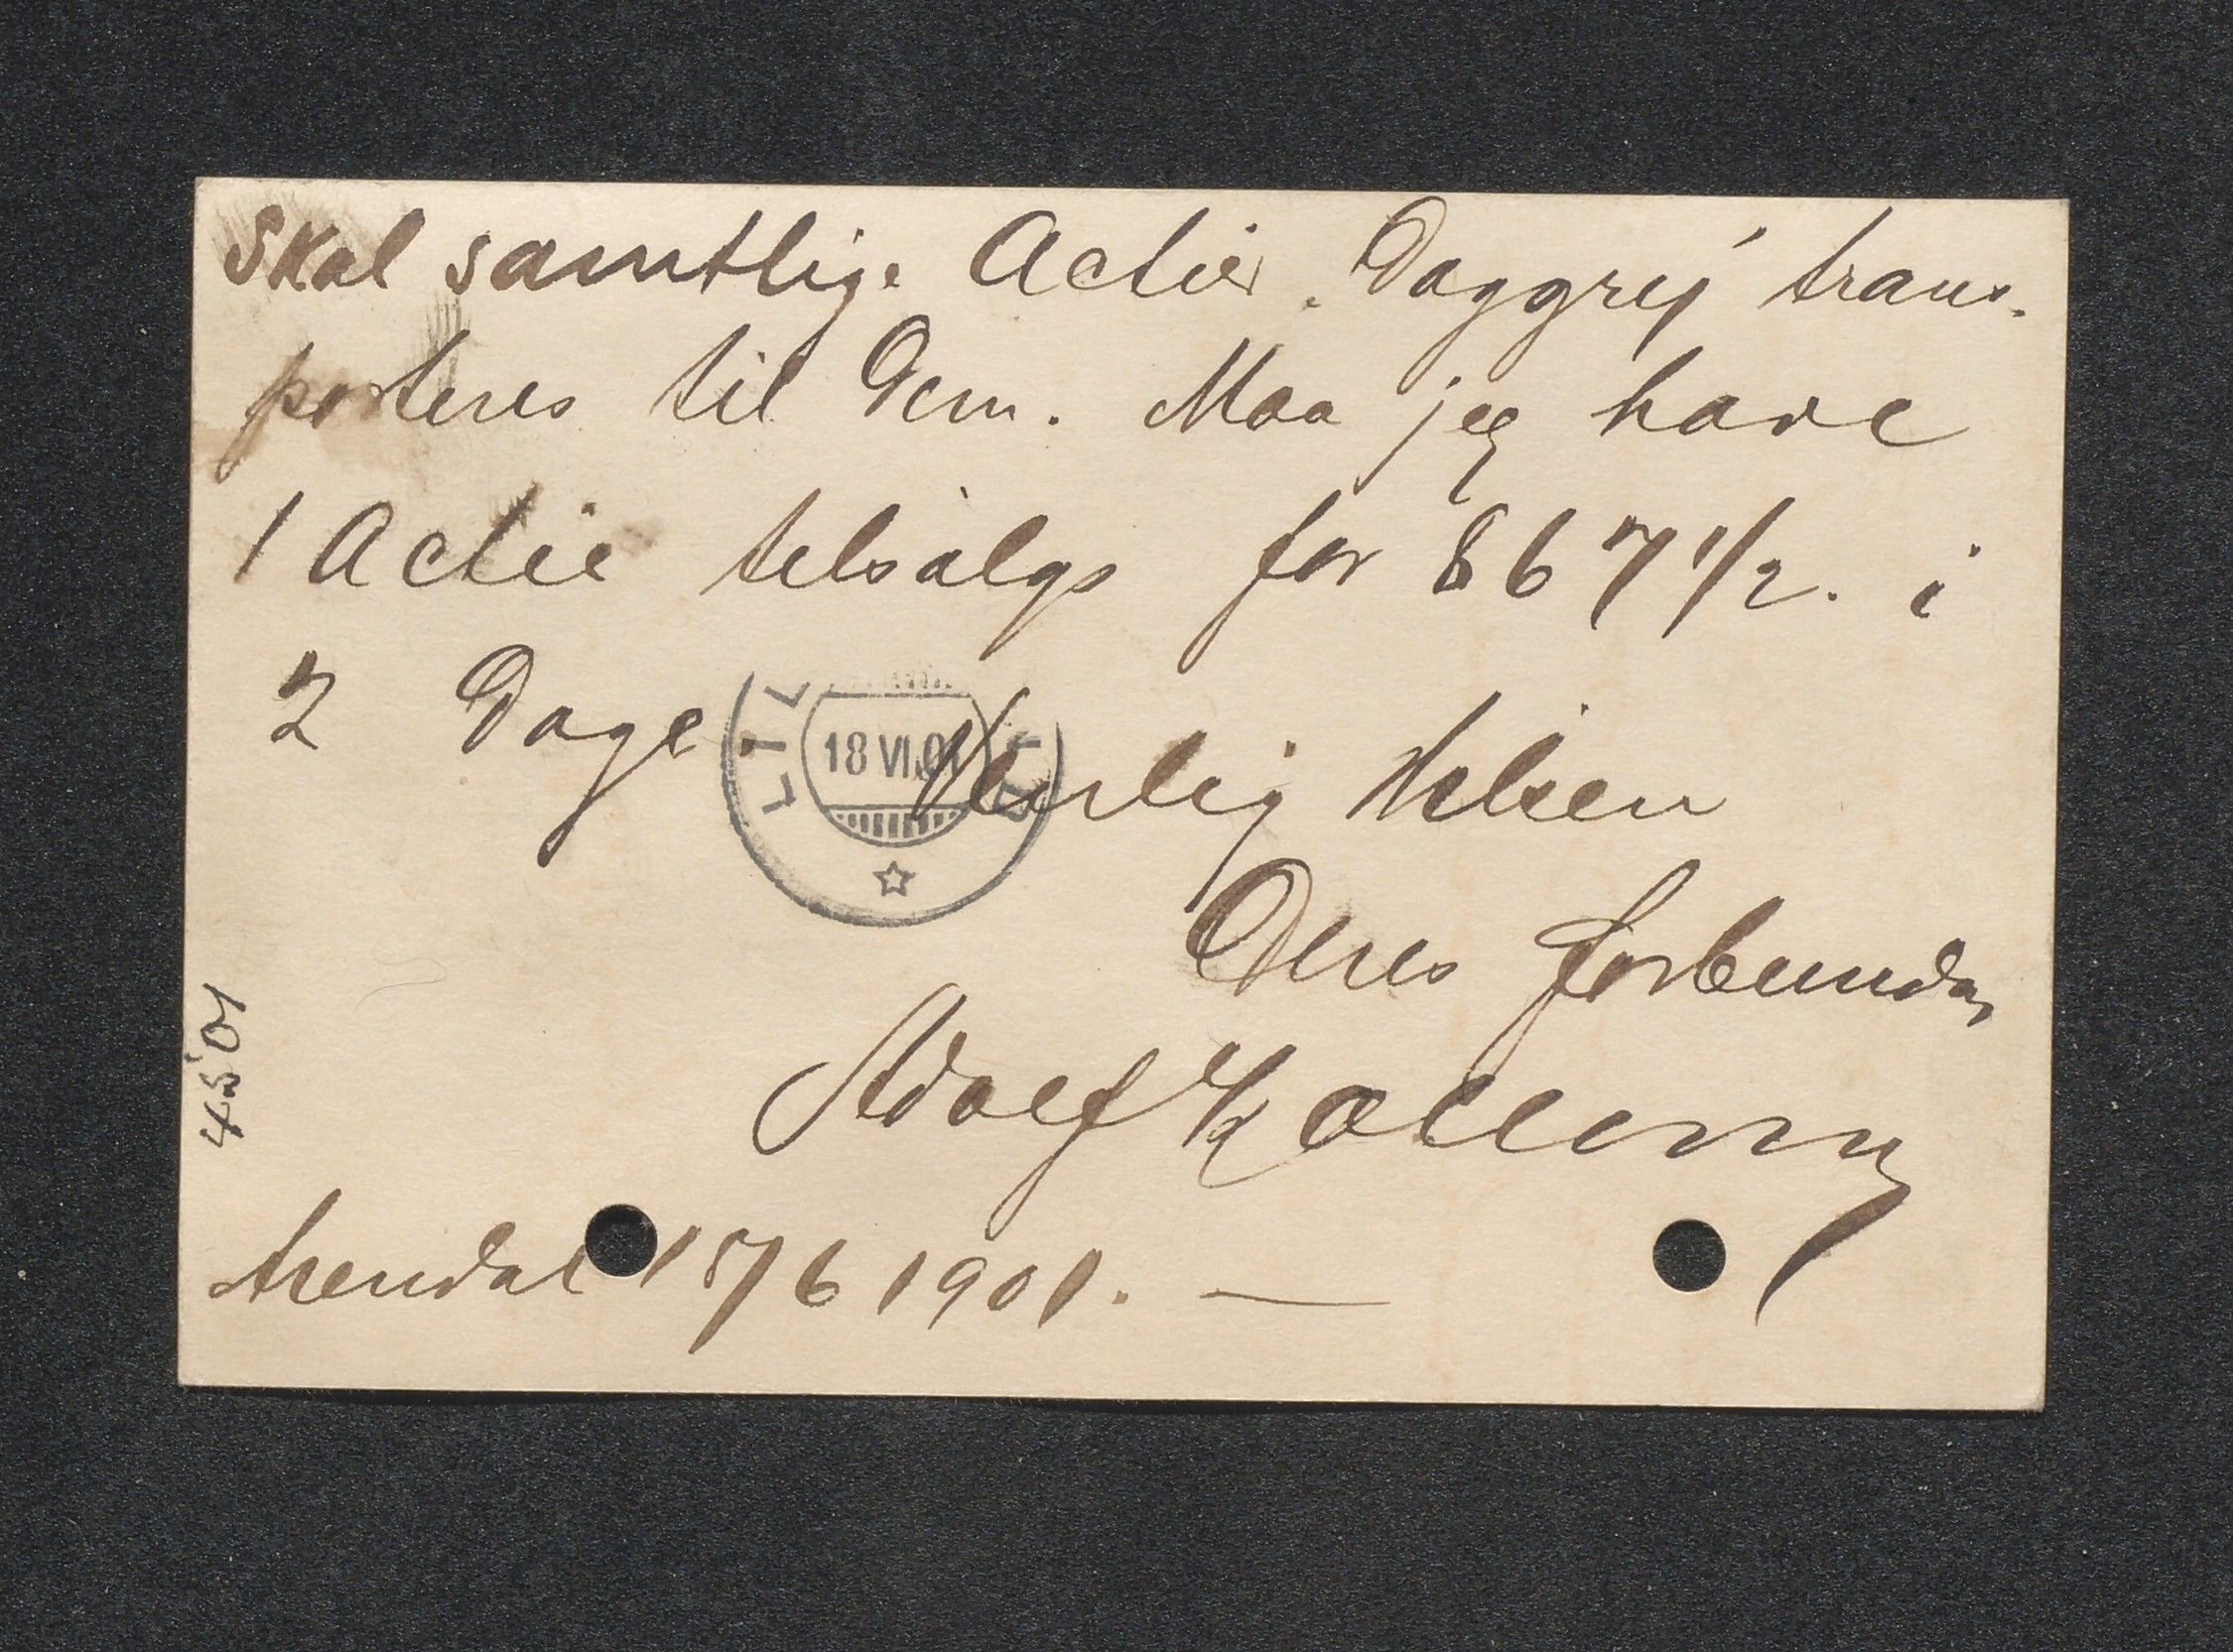 Skal samtlige Actier "Daggry" trans-
porteres til Dem. Maa jeg have
1 Actie tilsalgs for 867 1/2. i
2 Dage
LIL
18 VI.01
Venlig hilsen
Deres forbundne
Adolf
Arendal 17 6 1901. —